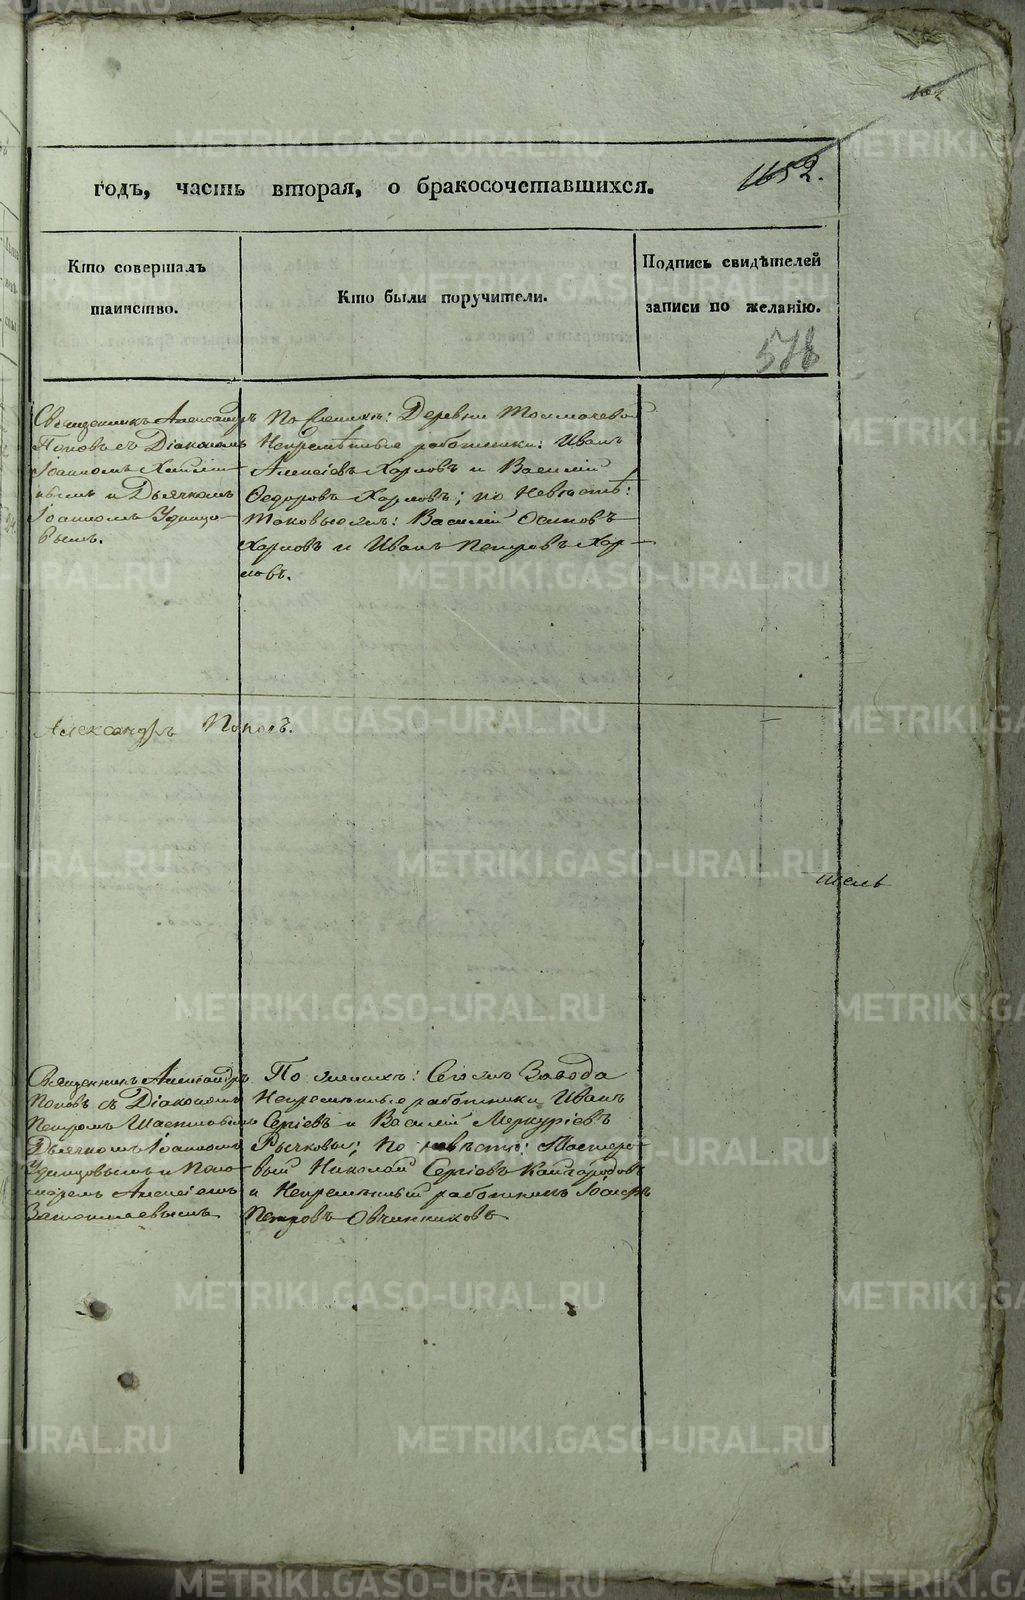 годъ, часть вторая, о бракосочетавшихся.
1652.
Кто совершалъ
таинство.
Кто были поручители.
Подпись свидѣтелей
записи по желанію.
578
Священникъ Александръ
Поповъ съ Діакономъ
Іоанномъ
и Дьячкомъ
Іоанномъ Удинцо-
вымъ.
По женихѣ: Деревни Толмачевой
Непремѣнные работники: Иванъ
Алексіевъ Харловъ и Василій
Ѳедоровъ Харловъ; по Невѣстѣ:
Таковыежъ: Василій Осиповъ
Харловъ и Иванъ Петровъ Хар-
ловъ.
Александръ Поповъ.
тель
Священникъ Александръ
Поповъ съ Діакономъ
Петромъ
Дьячкомъ Іоанномъ
Удинцовымъ и Поно-
маремъ Алексіемъ
По женихѣ: Сего жъ Завода
Непремѣнные работники Иванъ
Сергіевъ и Василій Меркуріевъ
Рычковы; По невѣстѣ: Мастеро-
вый Николай Сергіевъ Кайгородовъ
и Непремѣнный работникъ Іосифъ
Петровъ Овчинниковъ.
METRIKI.GASO-URAL.RU